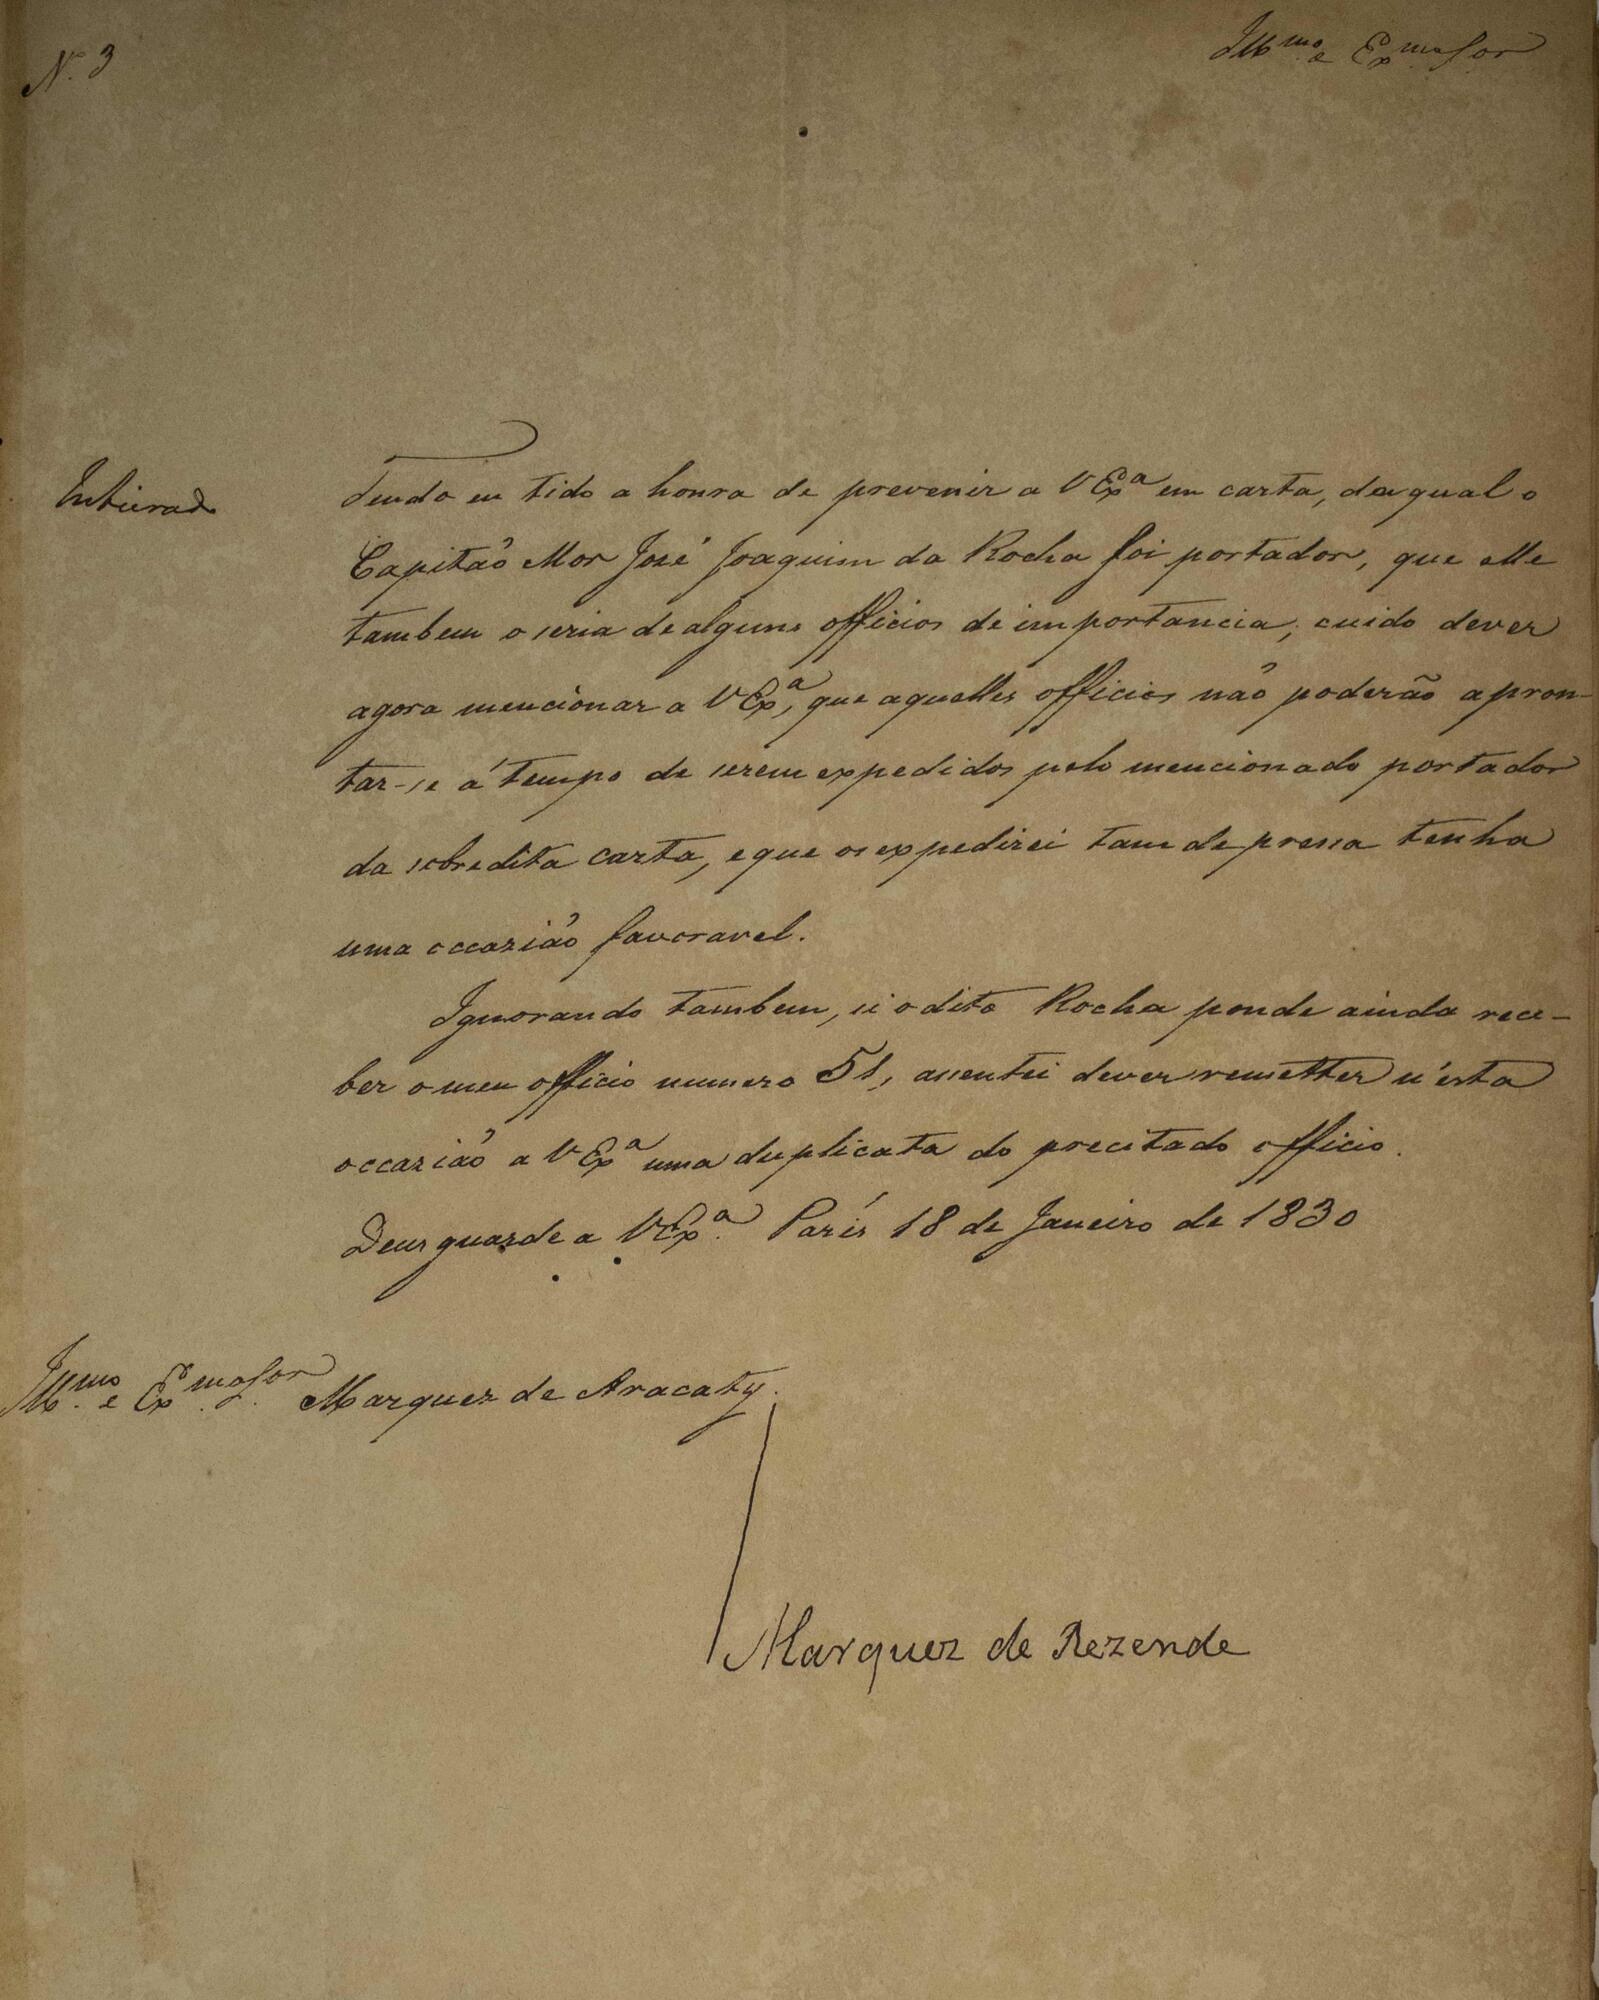 N. 3
Illmo. e Exmo. Sor.
Inteirado
Tendo eu tido a honra de prevenir a V Exa em carta, da qual o
Capitão Mor José Joaquim da Rocha foi portador, que elle
tambem o seria de alguns officios de importancia, cuido dever
agora mencionar a V Exa, que aquelles officios não poderão apron-
tar-se á tempo de serem expedidos pelo mencionado portador
da sobredita carta, e que os expedirei tam de pressa tenha
uma occazião favoravel.
Ignorando tambem, si o dito Rocha poude ainda rece-
ber o meu officio numero 51, assentei dever remetter n'esta
occazião a V Exa uma duplicata do precitado officio.
Deus guarde a V Exa. París 18 de Janeiro de 1830
Illmo. e Exmo. Sor. Marquez de Aracaty.
Marquez de Rezende